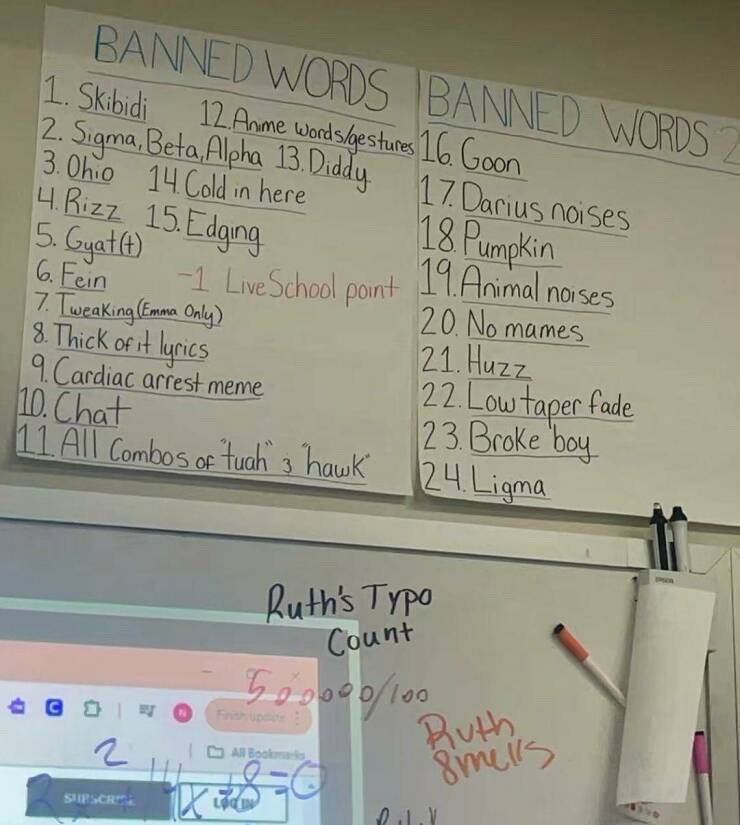 BANNED WORDS
1. Skibidi
2. Sigma, Beta, Alpha
3. Ohio
4. Rizz
5. Gyat(t)
6. Fein
7. Tweaking (Emma Only)
8. Thick of it lyrics
9. Cardiac arrest meme
10. Chat
11. All Combos of "tuah" & "hawk"
12. Anime words/gestures
13. Diddy
14. Cold in here
15. Edging
-1 LiveSchool point
BANNED WORDS 2
16. Goon
17. Darius noises
18. Pumpkin
19. Animal noises
20. No mames
21. Huzz
22. Low taper fade
23. Broke boy
24. Ligma
EPSON
Ruth's Typo
Count
500000/100
Ruth
Smells
N
Finish update
All Bookmarks
SUBSCRIBE
LOG IN